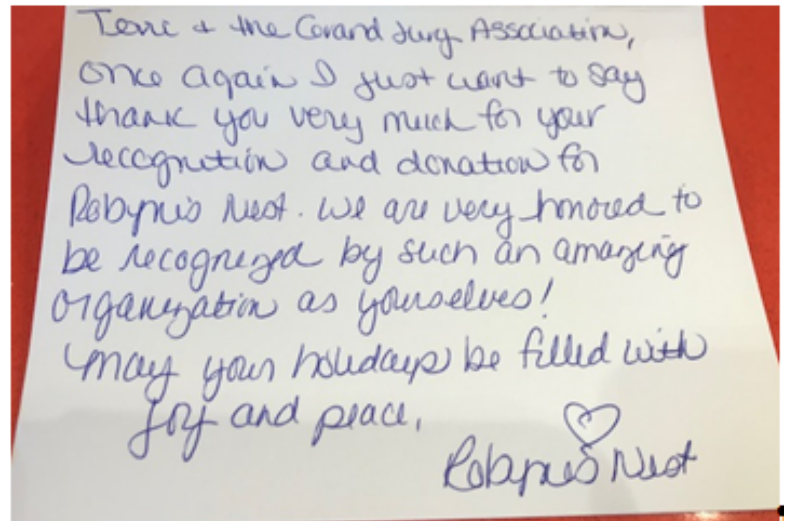 & the Grand Jury Association,
once again I just want to say
thank you very much for your
recognition and donation for
Robyn's Nest. We are very honored to
be recognized by such an amazing
organization as yourselves!
May your holidays be filled with
Joy and peace,
Robyn's Nest